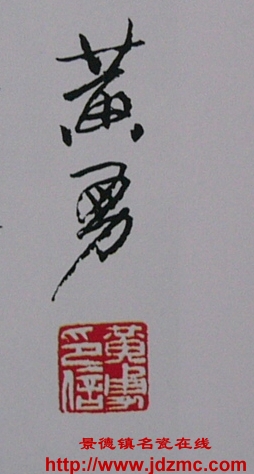 黄勇
黄勇印信
景德镇名瓷在线
http://www.jdzmc.com